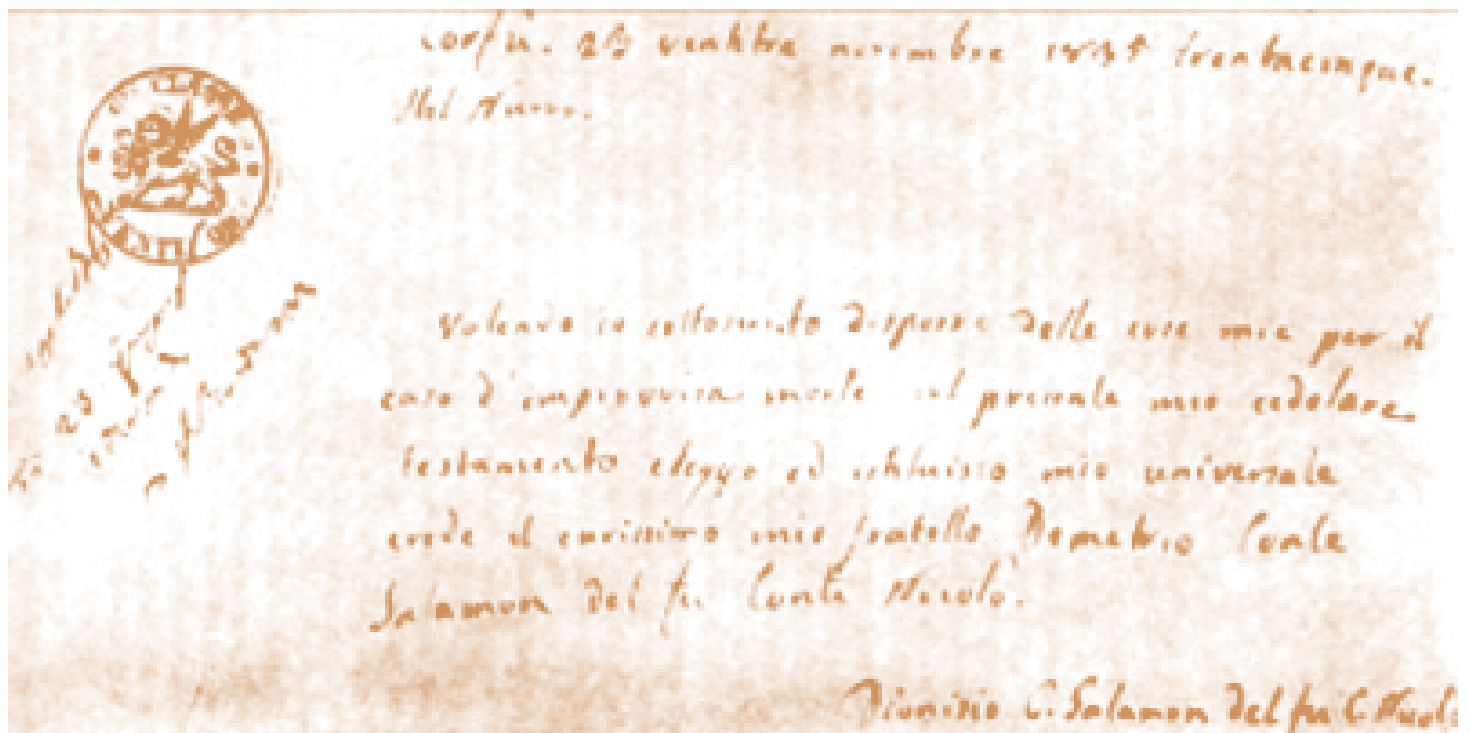 Corfù. 23 ventitre novembre 1835 trentacinque.
Volendo io sottoscritto disporre delle cose mie per il
caso d'improvvisa morte col presente mio cedolare
testamento eleggo ed istituisco mio universale
erede il carissimo mio fratello Demetrio Conte
Salamon del fu Conte Nicolò.
Dionisio C. Salamon del fu C. Nicolò